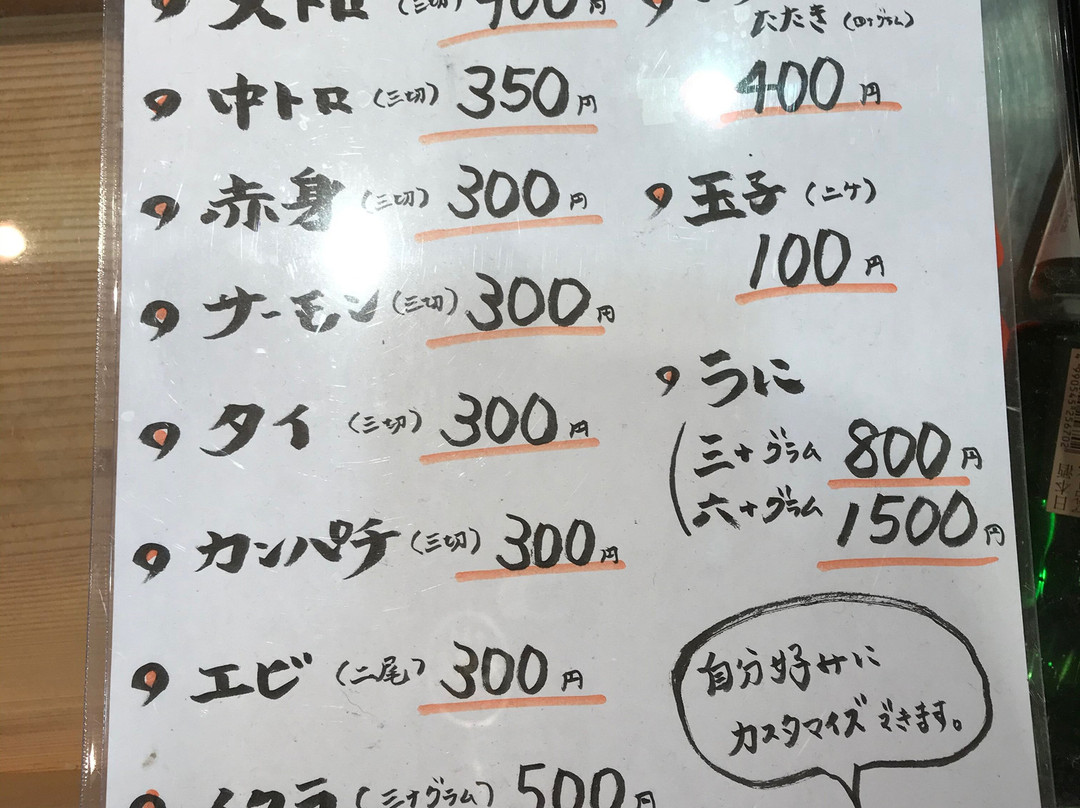 大トロ（三切）400円
中トロ（三切）350円
赤身（三切）300円
サーモン（三切）300円
タイ（三切）300円
カンパチ（三切）300円
エビ（二尾）300円
イクラ（三十グラム）500円
たたき（四十グラム）
400円
玉子（二ケ）
100円
うに
三十グラム 800円
六十グラム 1500円
自分好みに
カスタマイズできます。
日本酒